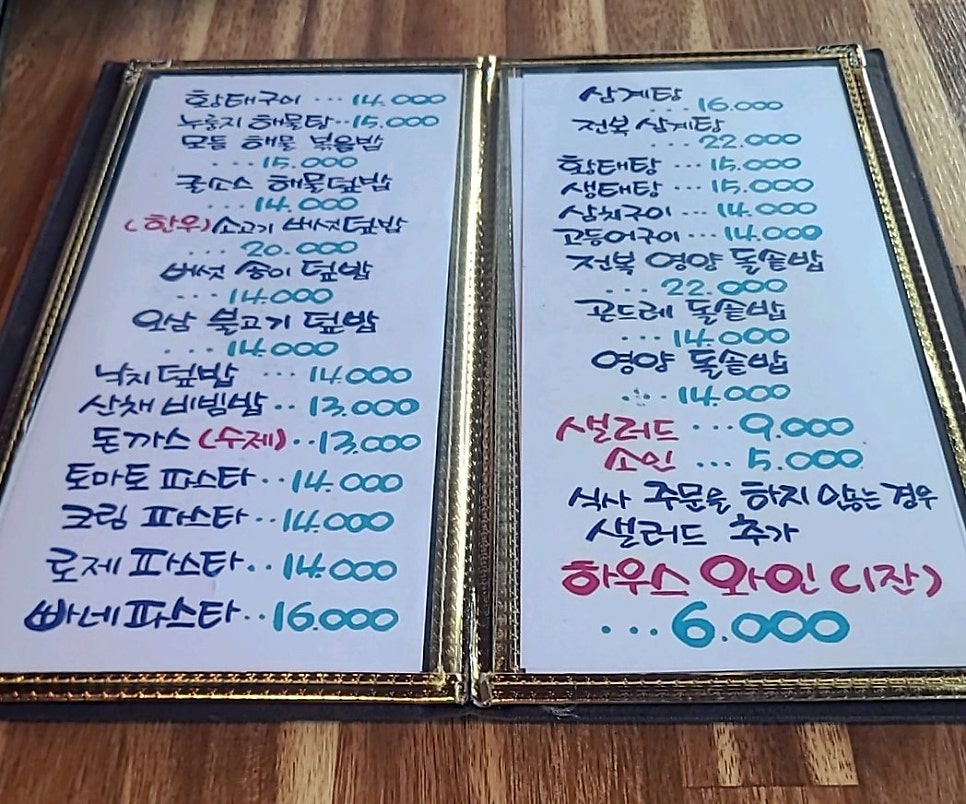 황태구이 ... 14.000
누룽지 해물탕..15.000
모듬 해물 볶음밥
... 15.000
굴소스 해물덮밥
... 14.000
(한우)소고기 버섯덮밥
... 20.000
버섯 송이 덮밥
... 14.000
오삼 불고기 덮밥
... 14.000
낙지덮밥 ... 14.000
산채 비빔밥.. 13.000
돈까스(수제)..13.000
토마토 파스타.. 14.000
크림 파스타.. 14.000
로제 파스타.. 14.000
빠네파스타...16.000
삼계탕
... 16.000
전복 삼계탕
... 22.000
황태탕 ... 15.000
생태탕 ... 15.000
삼치구이 ... 14.000
고등어구이 ... 14.000
전복 영양 돌솥밥
... 22.000
곤드레 돌솥밥
... 14.000
영양 돌솥밥
... 14.000
샐러드 ...9.000
소인 ... 5.000
식사 주문을 하지 않는 경우
샐러드 추가
하우스 와인 (1잔)
... 6.000